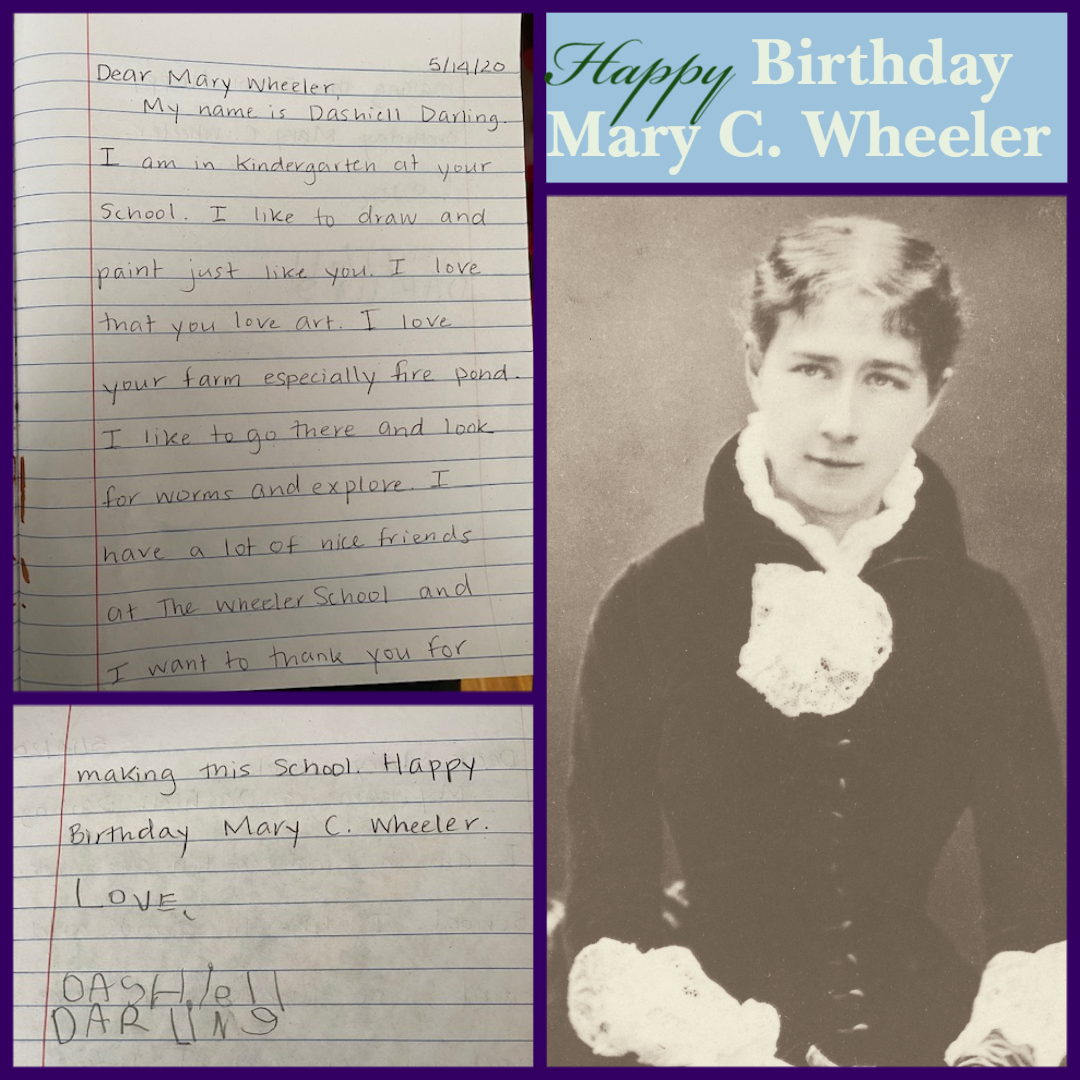 5/14/20
Dear Mary Wheeler,
My name is Dashiell Darling.
I am in Kindergarten at your
School. I like to draw and
paint just like you. I love
that you love art. I love
your farm especially fire pond.
I like to go there and look
for worms and explore. I
have a lot of nice friends
at The Wheeler School and
I want to thank you for
making this School. Happy
Birthday Mary C. Wheeler.
LOVE,
DASHIell
DARLING
Happy Birthday
Mary C. Wheeler